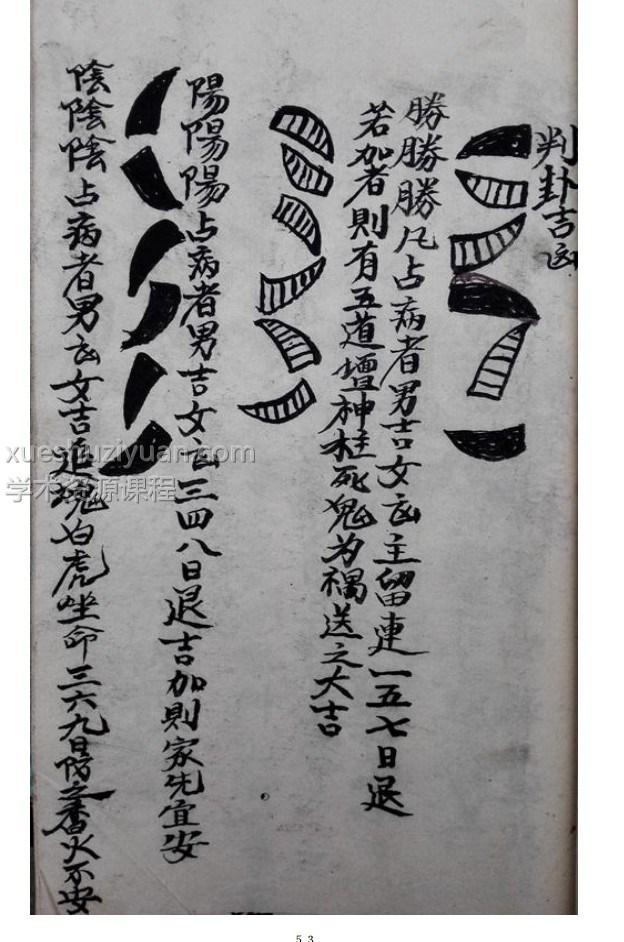 判卦吉凶
勝勝勝凡占病者男吉女凶主留連一五七日退
若加者則有五道壇神枉死鬼为禍送之大吉
陽陽陽占病者男吉女凶三四八日退吉加則家先宜安
陰陰陰占病者男凶女吉追魂白虎坐命三六九日防之香火不安
xueshuziyuan.com
学术资源课程
53